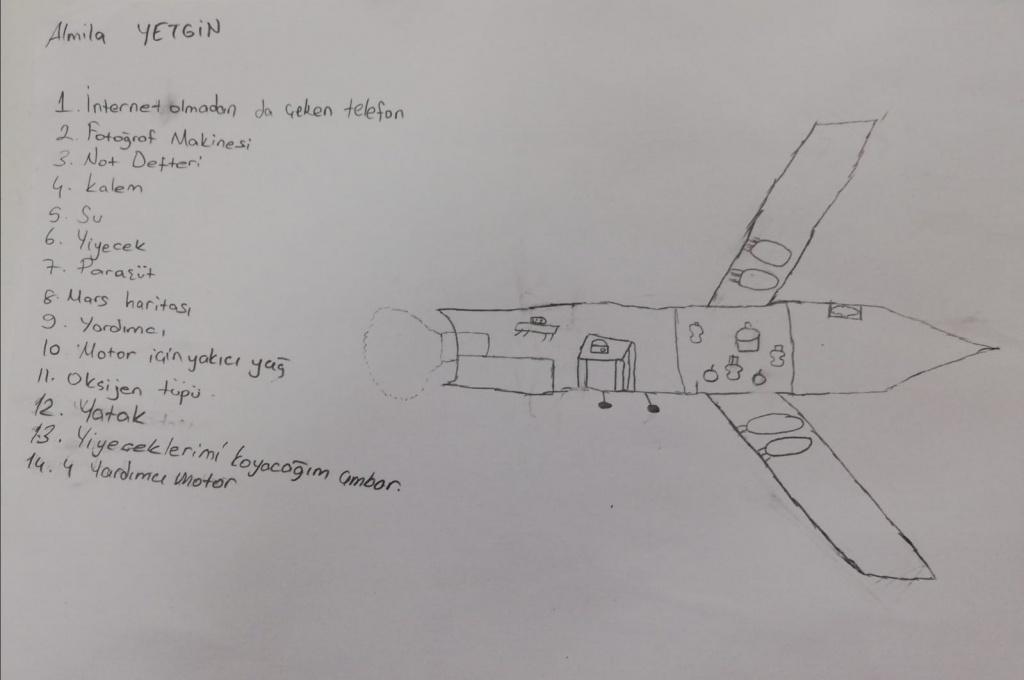 Almila YETGİN
1. İnternet olmadan da çeken telefon
2. Fotoğraf Makinesi
3. Not Defteri
4. kalem
5. Su
6. Yiyecek
7. Paraşüt
8. Mars haritası
9. Yardımcı
10 Motor için yakıcı yağ
11. Oksijen tüpü.
12. Yatak
13. Yiyeceklerimi koyacağım ambar.
14. 4 Yardımcı motor